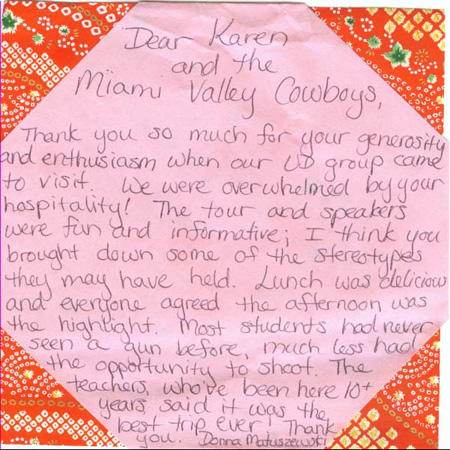 Dear Karen
and the
Miami Valley Cowboys,
Thank you so much for your generosity
and enthusiasm when our UD group came
to visit. We were overwhelmed by your
hospitality! The tour and speakers
were fun and informative; I think you
brought down some of the stereotypes
they may have held. Lunch was delicious
and everyone agreed the afternoon was
the highlight. Most students had never
seen a gun before, much less had
the opportunity to shoot. The
teachers, who've been here 10+
years said it was the
best trip ever! Thank
you. Donna Matuszewski